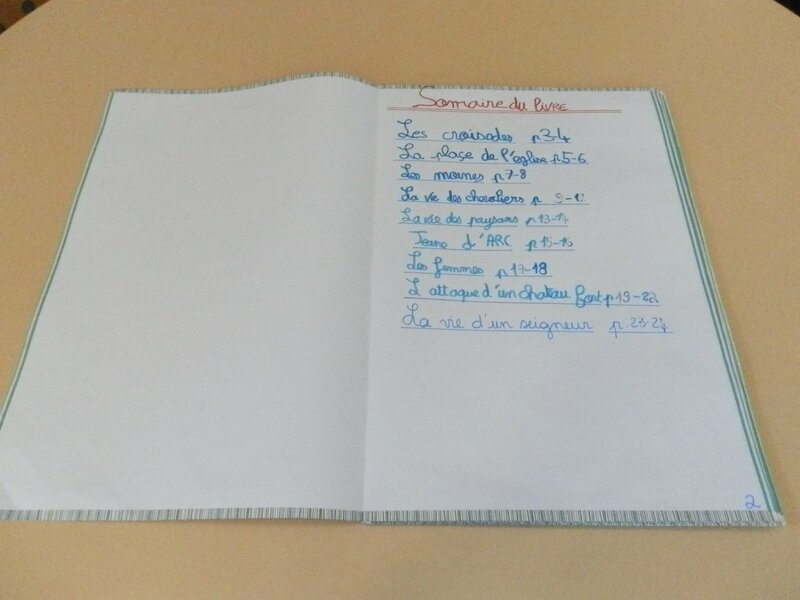 Somaire du LIVRE
Les croisades p3-4
La plaçe de l'église p5-6
Les moines p7-8
La vie des chevaliers p 9-12
La vie des paysans p13-14
Jeane d'ARC p15-16
Les femmes p17-18
L'attaque d'un chateau fort p19-22
La vie d'un seigneur p.23-24
2